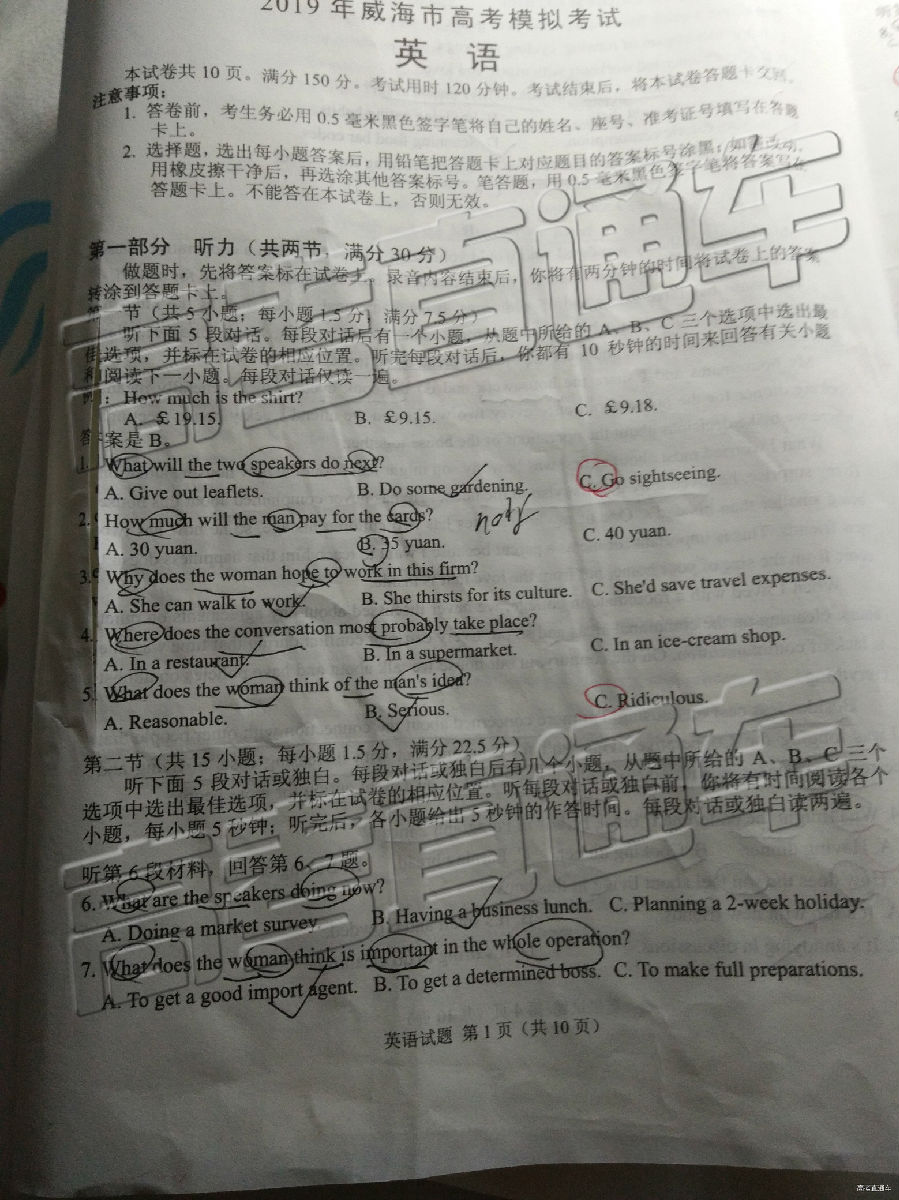 2019年威海市高考模拟考试
英 语
本试卷共 10 页。满分 150 分。考试用时 120 分钟。考试结束后，将本试卷答题卡交回。
注意事项：
1. 答卷前，考生务必用 0.5 毫米黑色签字笔将自己的姓名、座号、准考证号填写在答题
卡上。
2. 选择题，选出每小题答案后，用铅笔把答题卡上对应题目的答案标号涂黑；如需改动，
用橡皮擦干净后，再选涂其他答案标号。笔答题，用 0.5 毫米黑色签字笔将答案写在
答题卡上。不能答在本试卷上，否则无效。
第一部分 听力（共两节，满分 30 分）
做题时，先将答案标在试卷上。录音内容结束后，你将有两分钟的时间将试卷上的答案
转涂到答题卡上。
第一节（共 5 小题；每小题 1.5 分，满分 7.5 分）
听下面 5 段对话。每段对话后有一个小题，从题中所给的 A、B、C 三个选项中选出最
佳选项，并标在试卷的相应位置。听完每段对话后，你都有 10 秒钟的时间来回答有关小题
和阅读下一小题。每段对话仅读一遍。
例：How much is the shirt?
A. ￡19.15. B. ￡9.15. C. ￡9.18.
答案是 B。
1. What will the two speakers do next?
A. Give out leaflets. B. Do some gardening. C. Go sightseeing.
2. How much will the man pay for the cards?
A. 30 yuan. B. 35 yuan. C. 40 yuan.
3. Why does the woman hope to work in this firm?
A. She can walk to work. B. She thirsts for its culture. C. She'd save travel expenses.
4. Where does the conversation most probably take place?
A. In a restaurant. B. In a supermarket. C. In an ice-cream shop.
5. What does the woman think of the man's idea?
A. Reasonable. B. Serious. C. Ridiculous.
第二节（共 15 小题；每小题 1.5 分，满分 22.5 分）
听下面 5 段对话或独白。每段对话或独白后有几个小题，从题中所给的 A、B、C 三个
选项中选出最佳选项，并标在试卷的相应位置。听每段对话或独白前，你将有时间阅读各个
小题，每小题 5 秒钟；听完后，各小题给出 5 秒钟的作答时间。每段对话或独白读两遍。
听第 6 段材料，回答第 6、7 题。
6. What are the speakers doing now?
A. Doing a market survey. B. Having a business lunch. C. Planning a 2-week holiday.
7. What does the woman think is important in the whole operation?
A. To get a good import agent. B. To get a determined boss. C. To make full preparations.
英语试题 第 1 页（共 10 页）
高考直通车
高考直通车
高考直通车